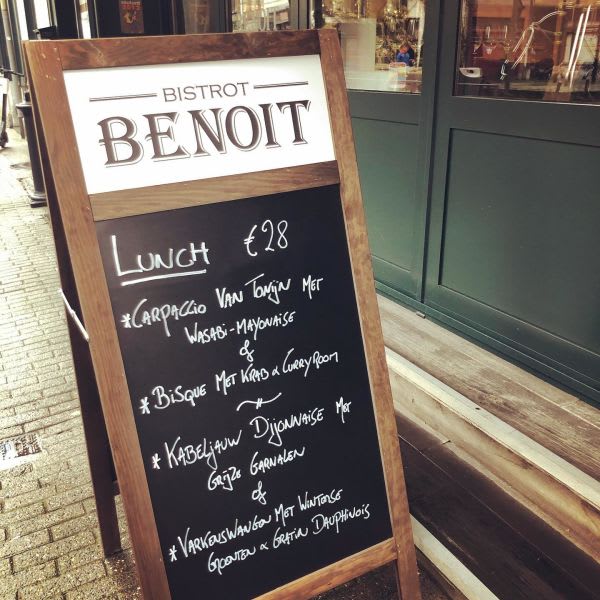 BISTROT
BENOIT
LUNCH €28
*CARPACCIO VAN TONIJN MET
WASABI-MAYONAISE
of
*BISQUE MET KRAB & CURRYROOM
*KABELJAUW DIJONNAISE MET
GRIJZE GARNALEN
of
*VARKENSWANGEN MET WINTERSE
GROENTEN & GRATIN DAUPHINOIS